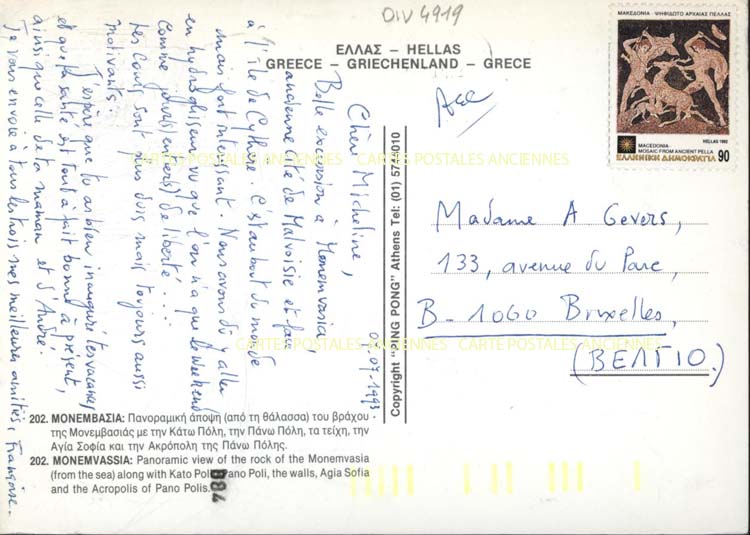 DIV 4919
ΕΛΛΑΣ – HELLAS
GREECE – GRIECHENLAND – GRECE
ΜΑΚΕΔΟΝΙΑ - ΨΗΦΙΔΩΤΟ ΑΡΧΑΙΑΣ ΠΕΛΛΑΣ
HELLAS 1992
MACEDONIA-
MOSAIC FROM ANCIENT PELLA
ΕΛΛΗΝΙΚΗ ΔΗΜΟΚΡΑΤΙΑ 90
09.07.1993.
Chère Micheline,
Belle excursion à Monemvasia,
ancienne cité de Malvoisie et face
à l'île de Cythère. C'est au bout du monde
mais fort intéressant. Nous avons dû y aller
en hydroglisseur, vu que l'on n'a que le weekend
comme jour(s entiers) de liberté ....
Les cours sont plus durs mais toujours aussi
motivants.
J'espère que tu as bien inauguré tes vacances
et que ta santé est tout à fait bonne à présent,
ainsi que celle de ta maman et d'André.
Je vous envoie à tous les trois mes meilleures amitiés, Françoise.
Copyright "PING PONG" Athens Tel: (01) 5744010
Madame A Gevers,
133, avenue du Parc,
B-1060 Bruxelles,
(ΒΕΛΓΙΟ.)
CARTES POSTALES ANCIENNES CARTE POSTALES ANCIENNES
CARTE POSTALES ANCIENNES CARTE POSTALES ANCIENNES
202. ΜΟΝΕΜΒΑΣΙΑ: Πανοραμική άποψη (από τη θάλασσα) του βράχου
της Μονεμβασιάς με την Κάτω Πόλη, την Πάνω Πόλη, τα τείχη, την
Αγία Σοφία και την Ακρόπολη της Πάνω Πόλης.
202. MONEMVASSIA: Panoramic view of the rock of the Monemvasia
(from the sea) along with Kato Poli, Pano Poli, the walls, Agia Sofia
and the Acropolis of Pano Polis.
984